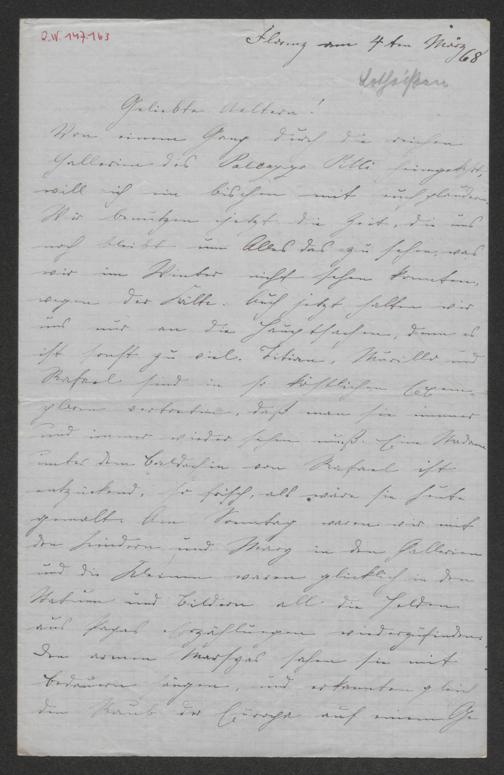 Q.W. 147.163
Florenz am 4ten März
/68
Geliebte Aeltern!
Von einem Gang durch die reichen
Gallerien des Palazzo Pitti heimgekehrt,
will ich ein bischen mit euch plaudern.
Wir benützen jetzt die Zeit, die uns
noch bleibt um Alles das zu sehen, was
wir im Winter nicht sehen konnten,
wegen der Kälte. Auch jetzt halten wir
uns nur an die Hauptsachen, denn es
ist sonst zu viel. Titian, Murillo und
Rafael sind in so köstlichen Exem-
plaren vertreten, daß man sie immer
und immer wieder sehen muß. Eine Madonna
unter dem Baldachin von Rafael ist
entzückend, so frisch, als wäre sie heute
gemalt. Am Sonntag waren wir mit
den Kindern und Mary in den Gallerien
und die Kleinen waren glücklich in den
Statuen und Bildern all die Helden
aus Papas Erzählungen wiederzufinden.
Den armen Marsyas sahen sie mit
Bedauern hängen, und erkannten gleich
den Raub der Europa auf einem Ge